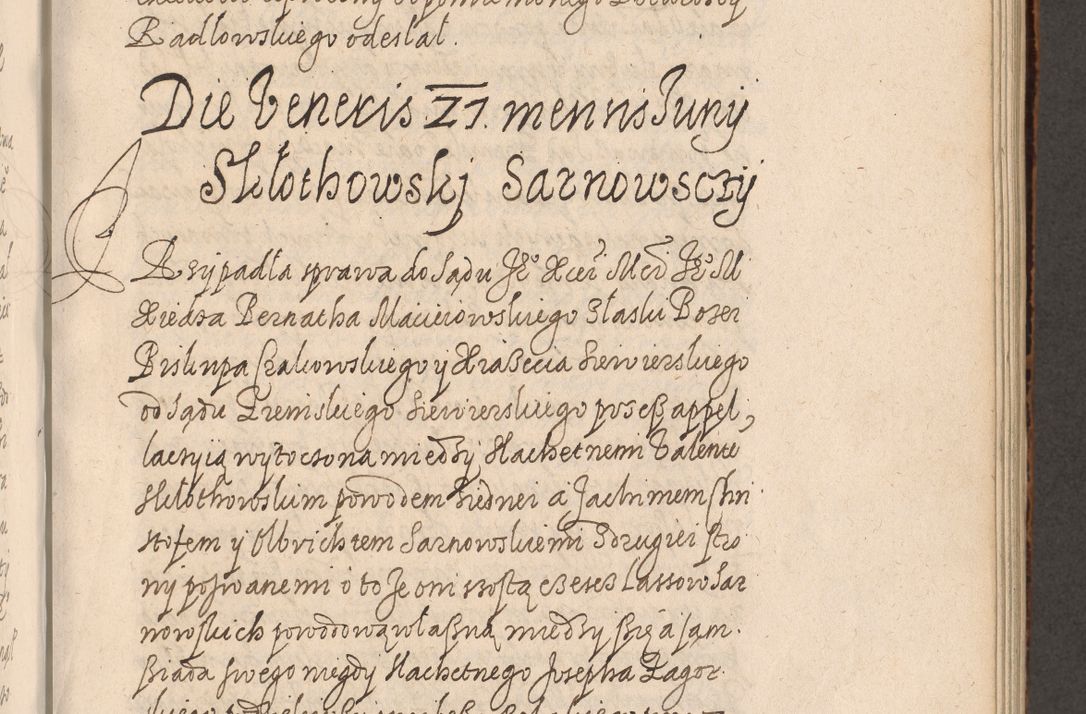 Radłowskiego odesłał.
Die Veneris 21. mensis Junij
Skłothowskj Sarnowsczÿ
Przÿpadła sprawa do Sądu Je° Xcei Mci Je° M
Xiedza Bernatha Macieiowskiego Złaski Bozei
Biskupa Crakowskiego ÿ Xiazęcia Siewierskiego
od Sądu Ziemskiego Siewierskiego przeß appel,
lacyią wytoczona miedzy Slachetnemi Valente
Skłothowskim powodem Ziednei a Jachimem Chri
stofem ÿ Olbrichtem Sarnowskiemi Zdrugiei stro
nÿ pozwanemi o to Je oni szostą częsc Lassow Sar
nowskich powodową własną miedzÿ ßię a sąm
ßiada swego niegdÿ Slachetnego Josepha Zagor